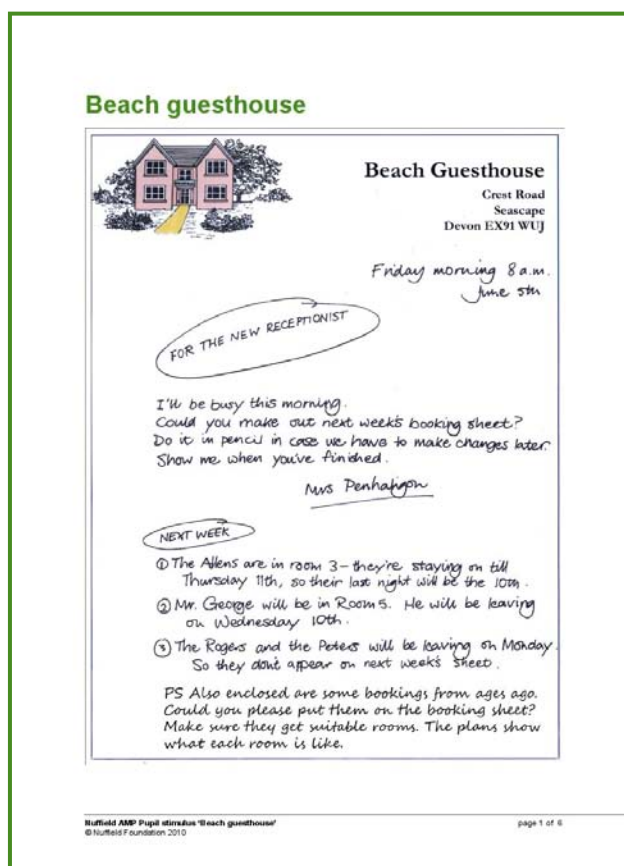 Beach guesthouse
Beach Guesthouse
Crest Road
Seascape
Devon EX91 WUJ
Friday morning 8 a.m.
June 5th
FOR THE NEW RECEPTIONIST
I'll be busy this morning.
Could you make out next week's booking sheet?
Do it in pencil in case we have to make changes later.
Show me when you've finished.
Mrs Penhaligon
NEXT WEEK
① The Allens are in room 3 – they're staying on till
Thursday 11th, so their last night will be the 10th.
② Mr. George will be in Room 5. He will be leaving
on Wednesday 10th.
③ The Rogers and the Peters will be leaving on Monday.
So they don't appear on next week's sheet.
PS Also enclosed are some bookings from ages ago.
Could you please put them on the booking sheet?
Make sure they get suitable rooms. The plans show
what each room is like.
Nuffield AMP Pupil stimulus 'Beach guesthouse'
page 1 of 6
© Nuffield Foundation 2010